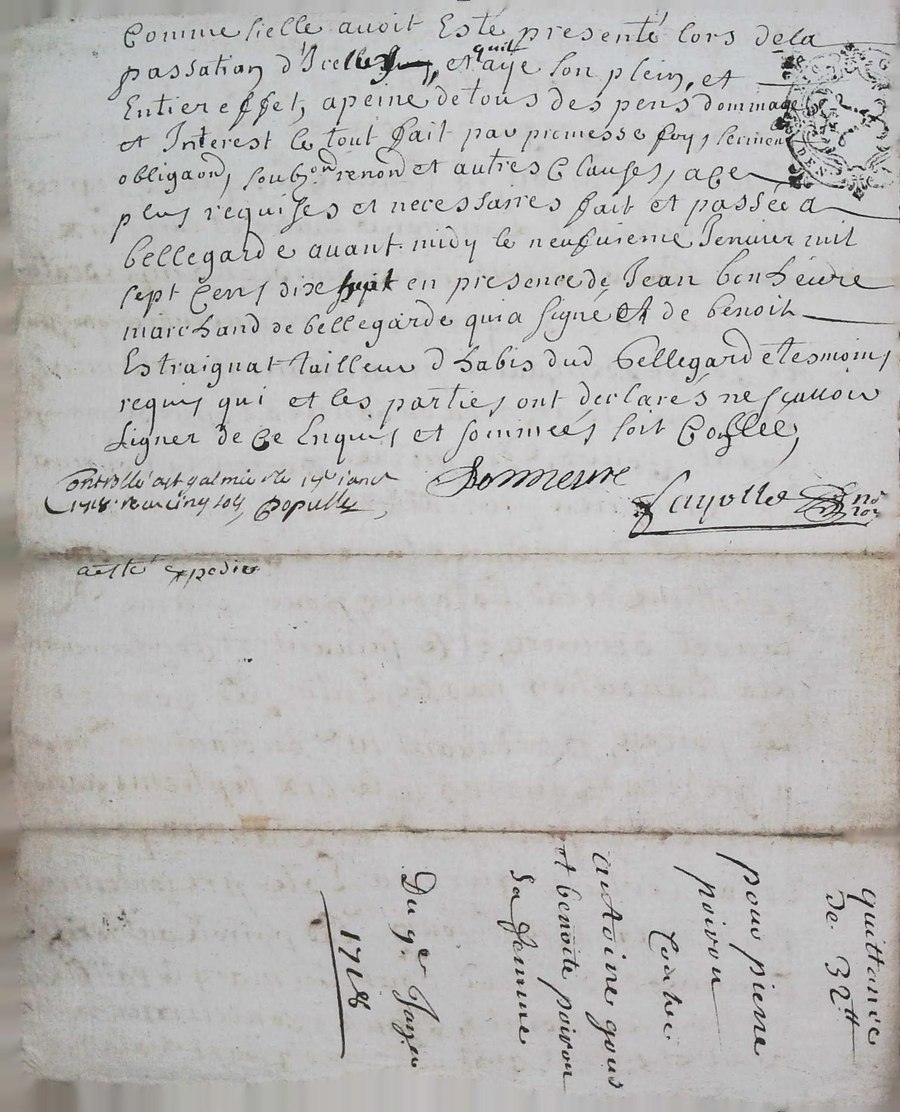 Comme sielle avoit Esté presenté lors dela
passation d'Icelle, et quil aye son plein, et
Entier effet, apeine detous des pens dommage
et Interest le tout fait par promesse foy, serment
obligaon, soubzon renon et autres Clauses, ace
plus requises et necessaires fait et passée a
bellegarde avant midy le neufvieme Jenvier mil
sept Cens dixe huit en presence de Jean bonheure
marchand de bellegarde qui a signé Et de benoit
Estraignat tailleur d'habis dud bellegarde tesmoins
requis qui et les parties ont declarés ne sçavoir
signer de Ce Enquis et sommeés soit Collée,
Controllé
1718 reçu cinq sols
Bonneure
Fayolle nore roy
a esté expedié
quittance
de 32tt
pour pierre
poivou
Contre
antoine gous
et benoite poivou
sa femme
Du 9e Janer
1718